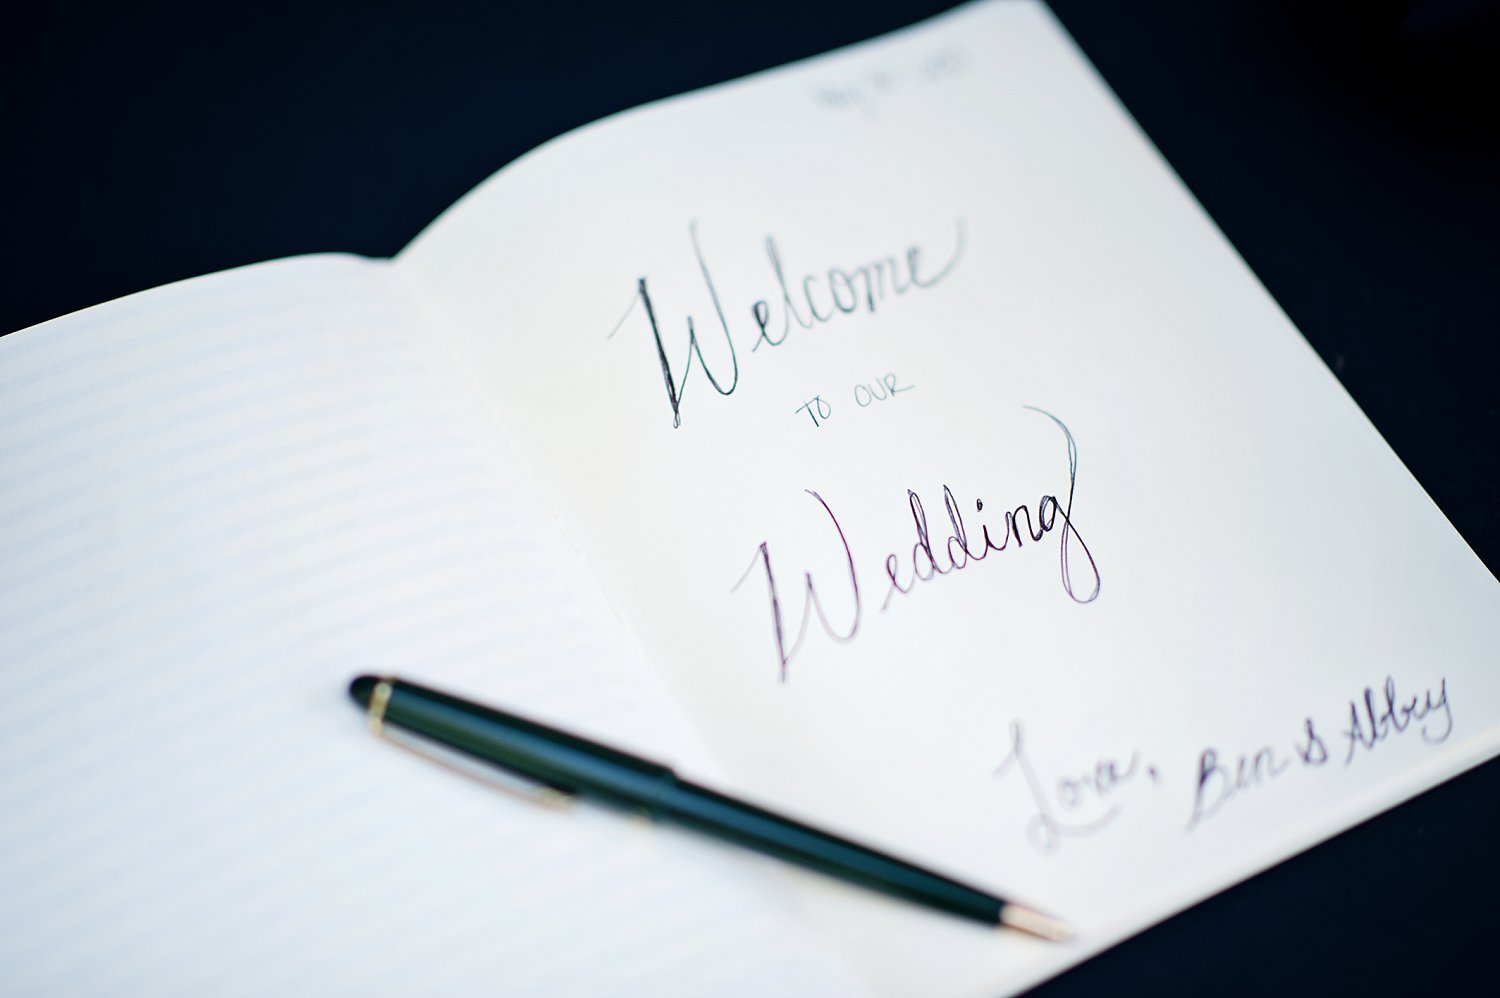 Welcome
TO OUR
Wedding
Love, Ben & Abbey